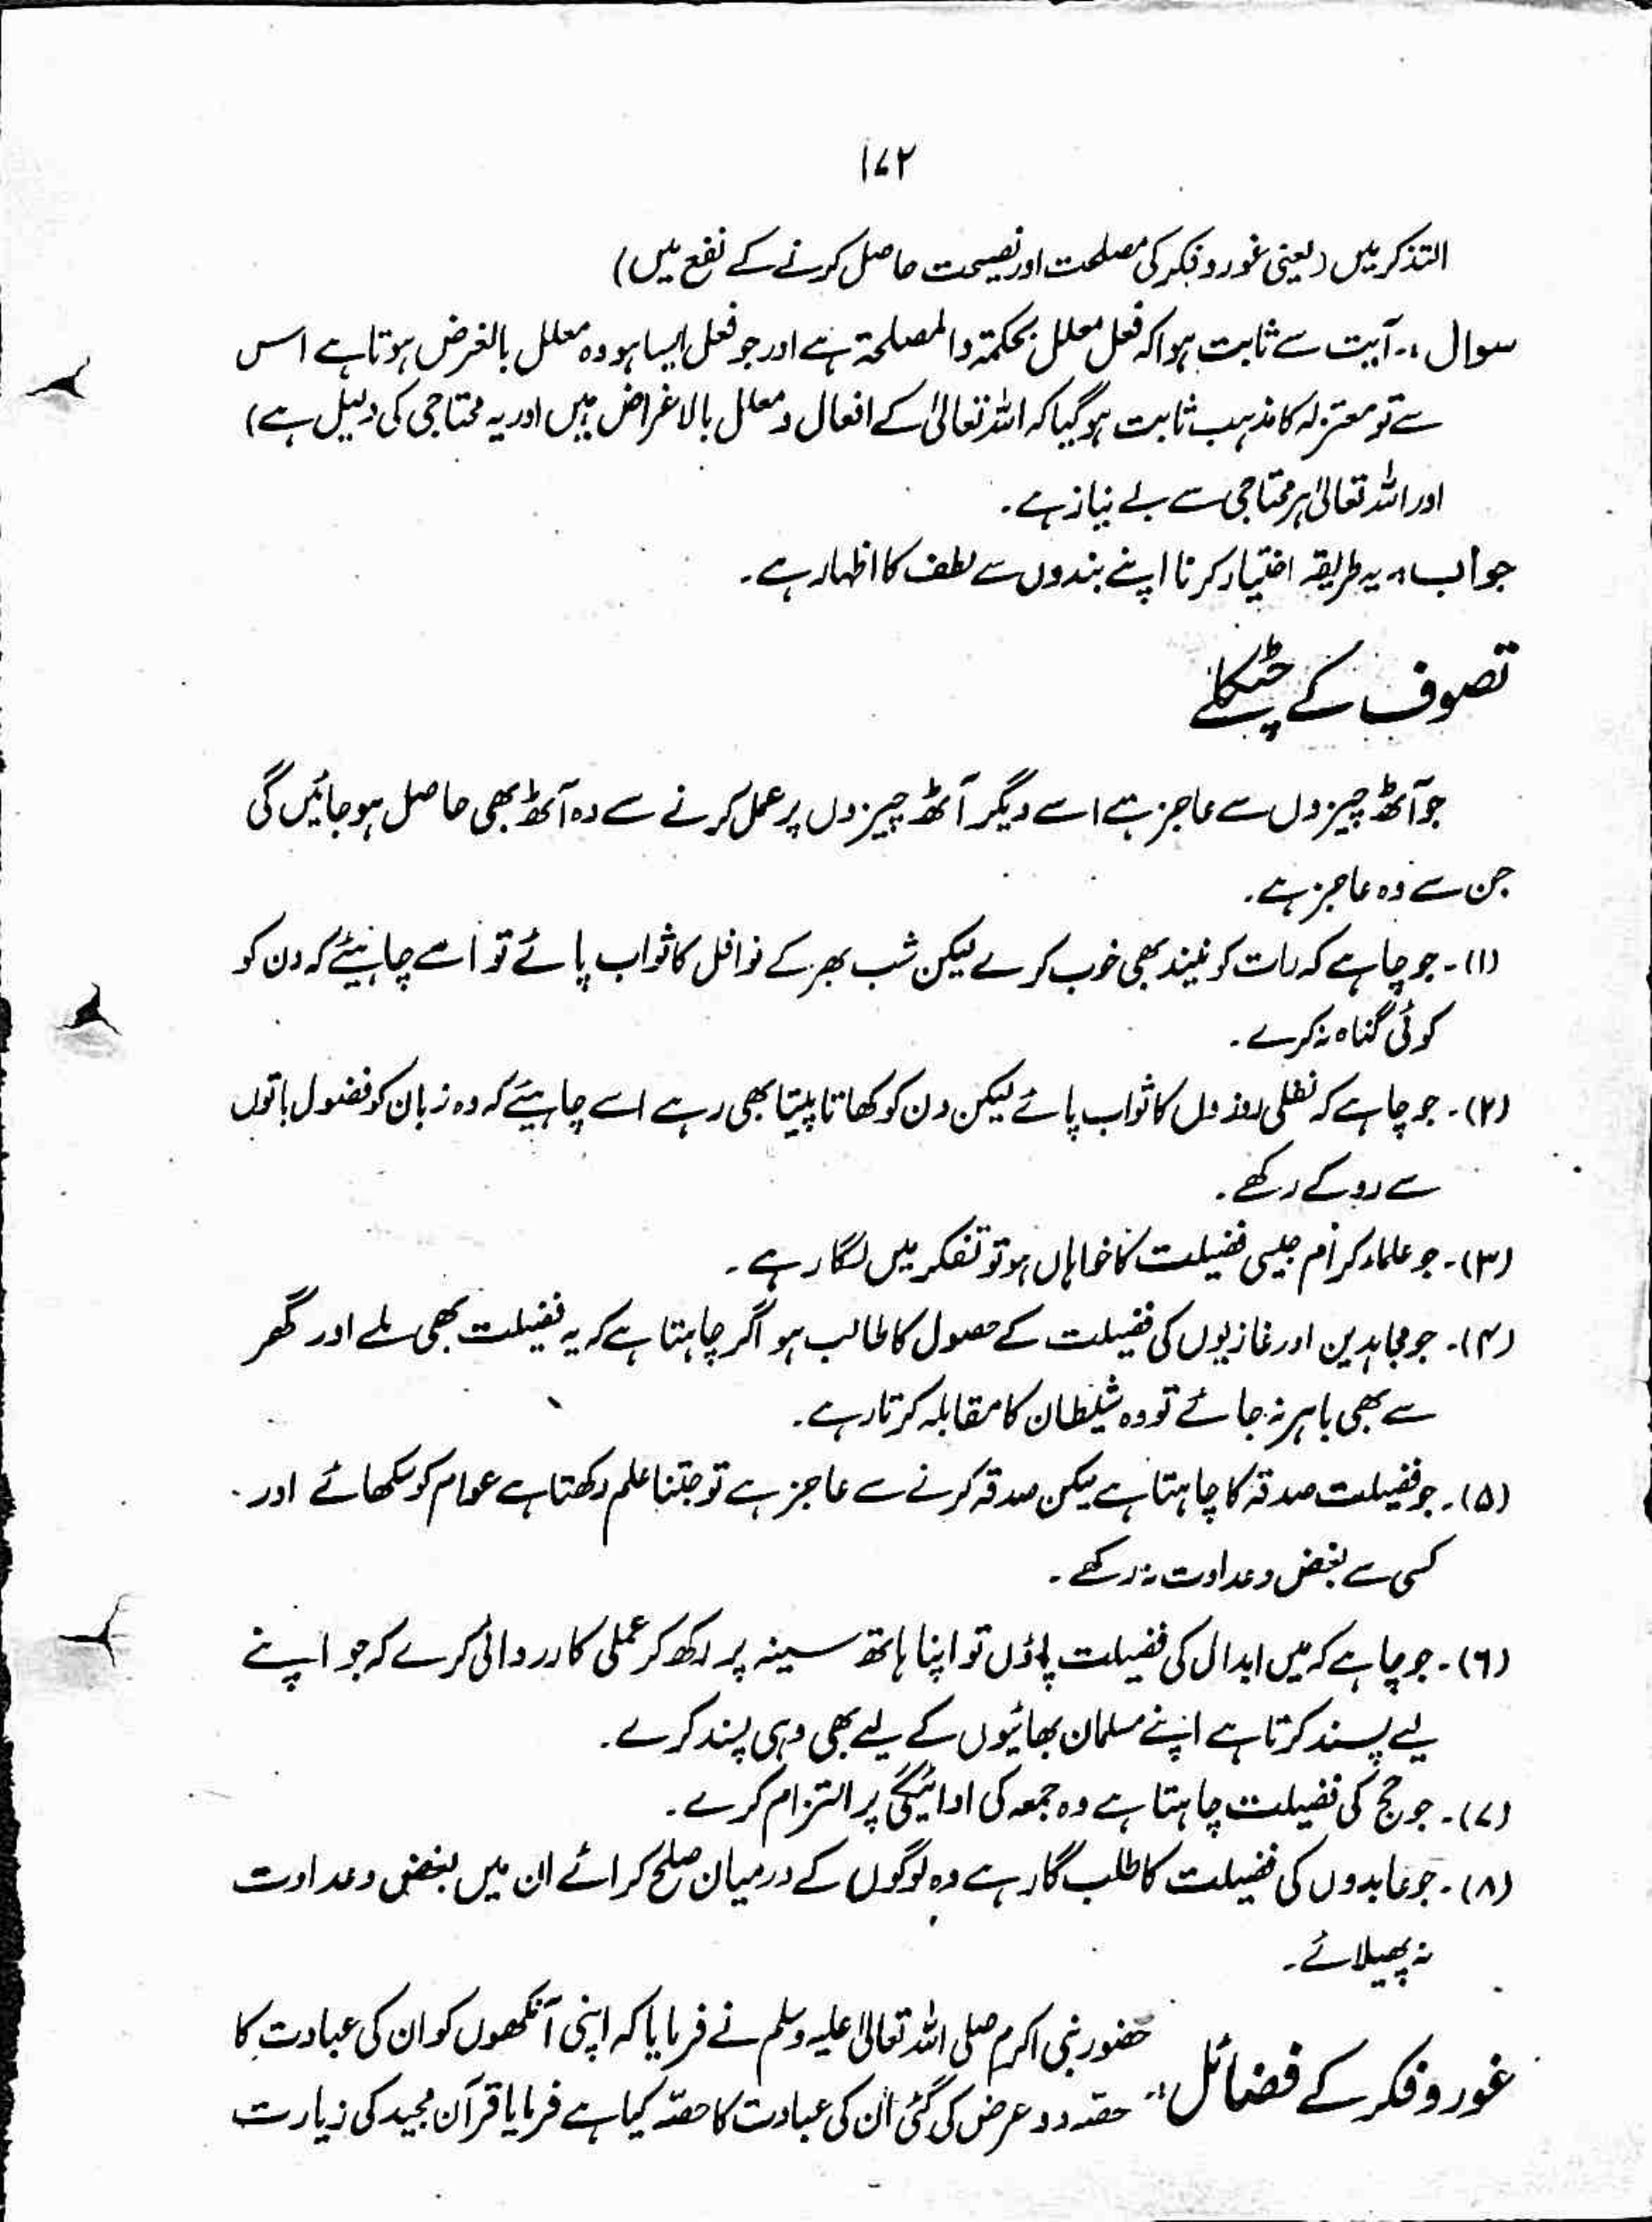 ۱۷۲
التذکر میں (یعنی غور و فکر کی مصلحت اور نصیحت حاصل کرنے کے نفع میں)
سوال :۔ آیت سے ثابت ہوا کہ فعل معلل بحکمۃ والمصلحۃ ہے اور جو فعل ایسا ہو وہ معلل بالغرض ہوتا ہے اس
سے تو معتزلہ کا مذہب ثابت ہو گیا کہ اللہ تعالیٰ کے افعال و معلل بالاغراض ہیں اور یہ محتاجی کی دلیل ہے)
اور اللہ تعالیٰ ہر محتاجی سے بے نیاز ہے۔
جواب :۔ یہ طریقہ اختیار کرنا اپنے بندوں سے لطف کا اظہار ہے۔
تصوف کے چٹکلے
جو آٹھ چیزوں سے عاجز ہے اسے دیگر آٹھ چیزوں پر عمل کرنے سے وہ آٹھ بھی حاصل ہو جائیں گی
جن سے وہ عاجز ہے۔
(۱)۔ جو چاہے کہ رات کو نیند بھی خوب کرے لیکن شب بھر کے نوافل کا ثواب پائے تو اسے چاہیئے کہ دن کو
کوئی گناہ نہ کرے۔
(۲)۔ جو چاہے کہ نفلی روزوں کا ثواب پائے لیکن دن کو کھاتا پیتا بھی رہے اسے چاہیئے کہ وہ زبان کو فضول باتوں
سے روکے رکھے۔
(۳)۔ جو علماء کرام جیسی فضیلت کا خواہاں ہو تو تفکر میں لگا رہے۔
(۴)۔ جو مجاہدین اور غازیوں کی فضیلت کے حصول کا طالب ہو اگر چاہتا ہے کہ یہ فضیلت بھی ملے اور گھر
سے بھی باہر نہ جائے تو وہ شیطان کا مقابلہ کرتا رہے۔
(۵)۔ جو فضیلت صدقہ کا چاہتا ہے لیکن صدقہ کرنے سے عاجز ہے تو جتنا علم رکھتا ہے عوام کو سکھائے اور
کسی سے بغض و عداوت نہ رکھے۔
(۶)۔ جو چاہے کہ میں ابدال کی فضیلت پاؤں تو اپنا ہاتھ سینہ پر رکھ کر عملی کارروائی کرے کہ جو اپنے
لیے پسند کرتا ہے اپنے مسلمان بھائیوں کے لیے بھی وہی پسند کرے۔
(۷)۔ جو حج کی فضیلت چاہتا ہے وہ جمعہ کی ادائیگی پر التزام کرے۔
(۸)۔ جو عابدوں کی فضیلت کا طلب گار ہے وہ لوگوں کے درمیان صلح کرائے ان میں بغض و عداوت
نہ پھیلائے۔
غور و فکر کے فضائل :۔ حضور نبی اکرم صلی اللہ تعالیٰ علیہ وسلم نے فرمایا کہ اپنی آنکھوں کو ان کی عبادت کا
حصہ دو عرض کی گئی ان کی عبادت کا حصہ کیا ہے فرمایا قرآن مجید کی زیارت